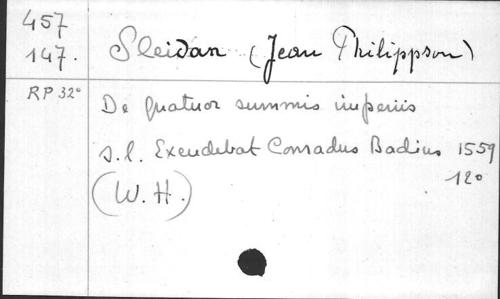 457
147. Sleidan (Jean Philippson)
RP 32° De quatuor summis imperiis
s.l. Excudebat Conradus Badius 1559
12°
(W. H.)